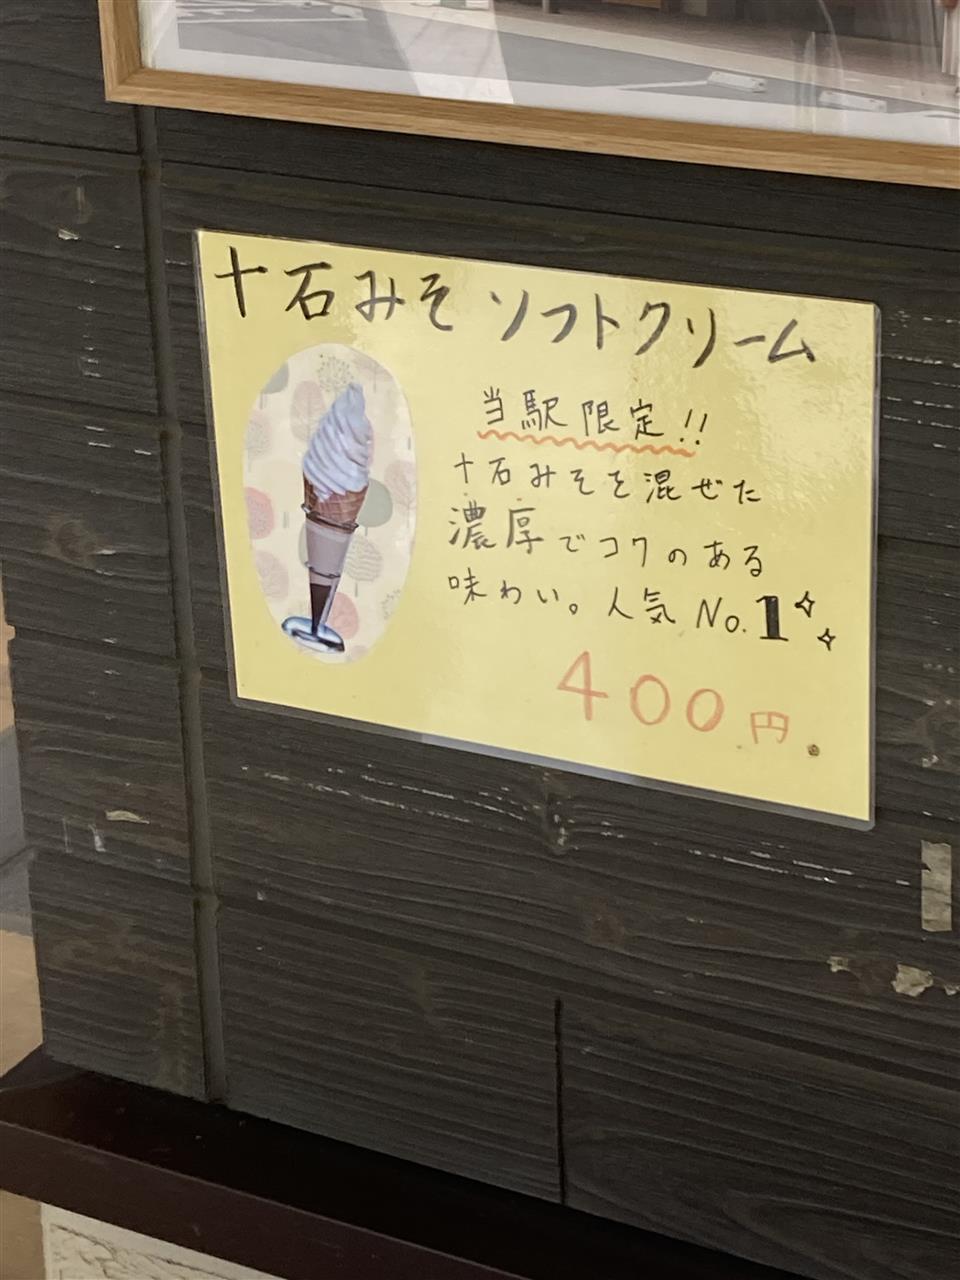 十石みそソフトクリーム
当駅限定!!
十石みそを混ぜた
濃厚でコクのある
味わい。人気No.1
400円.